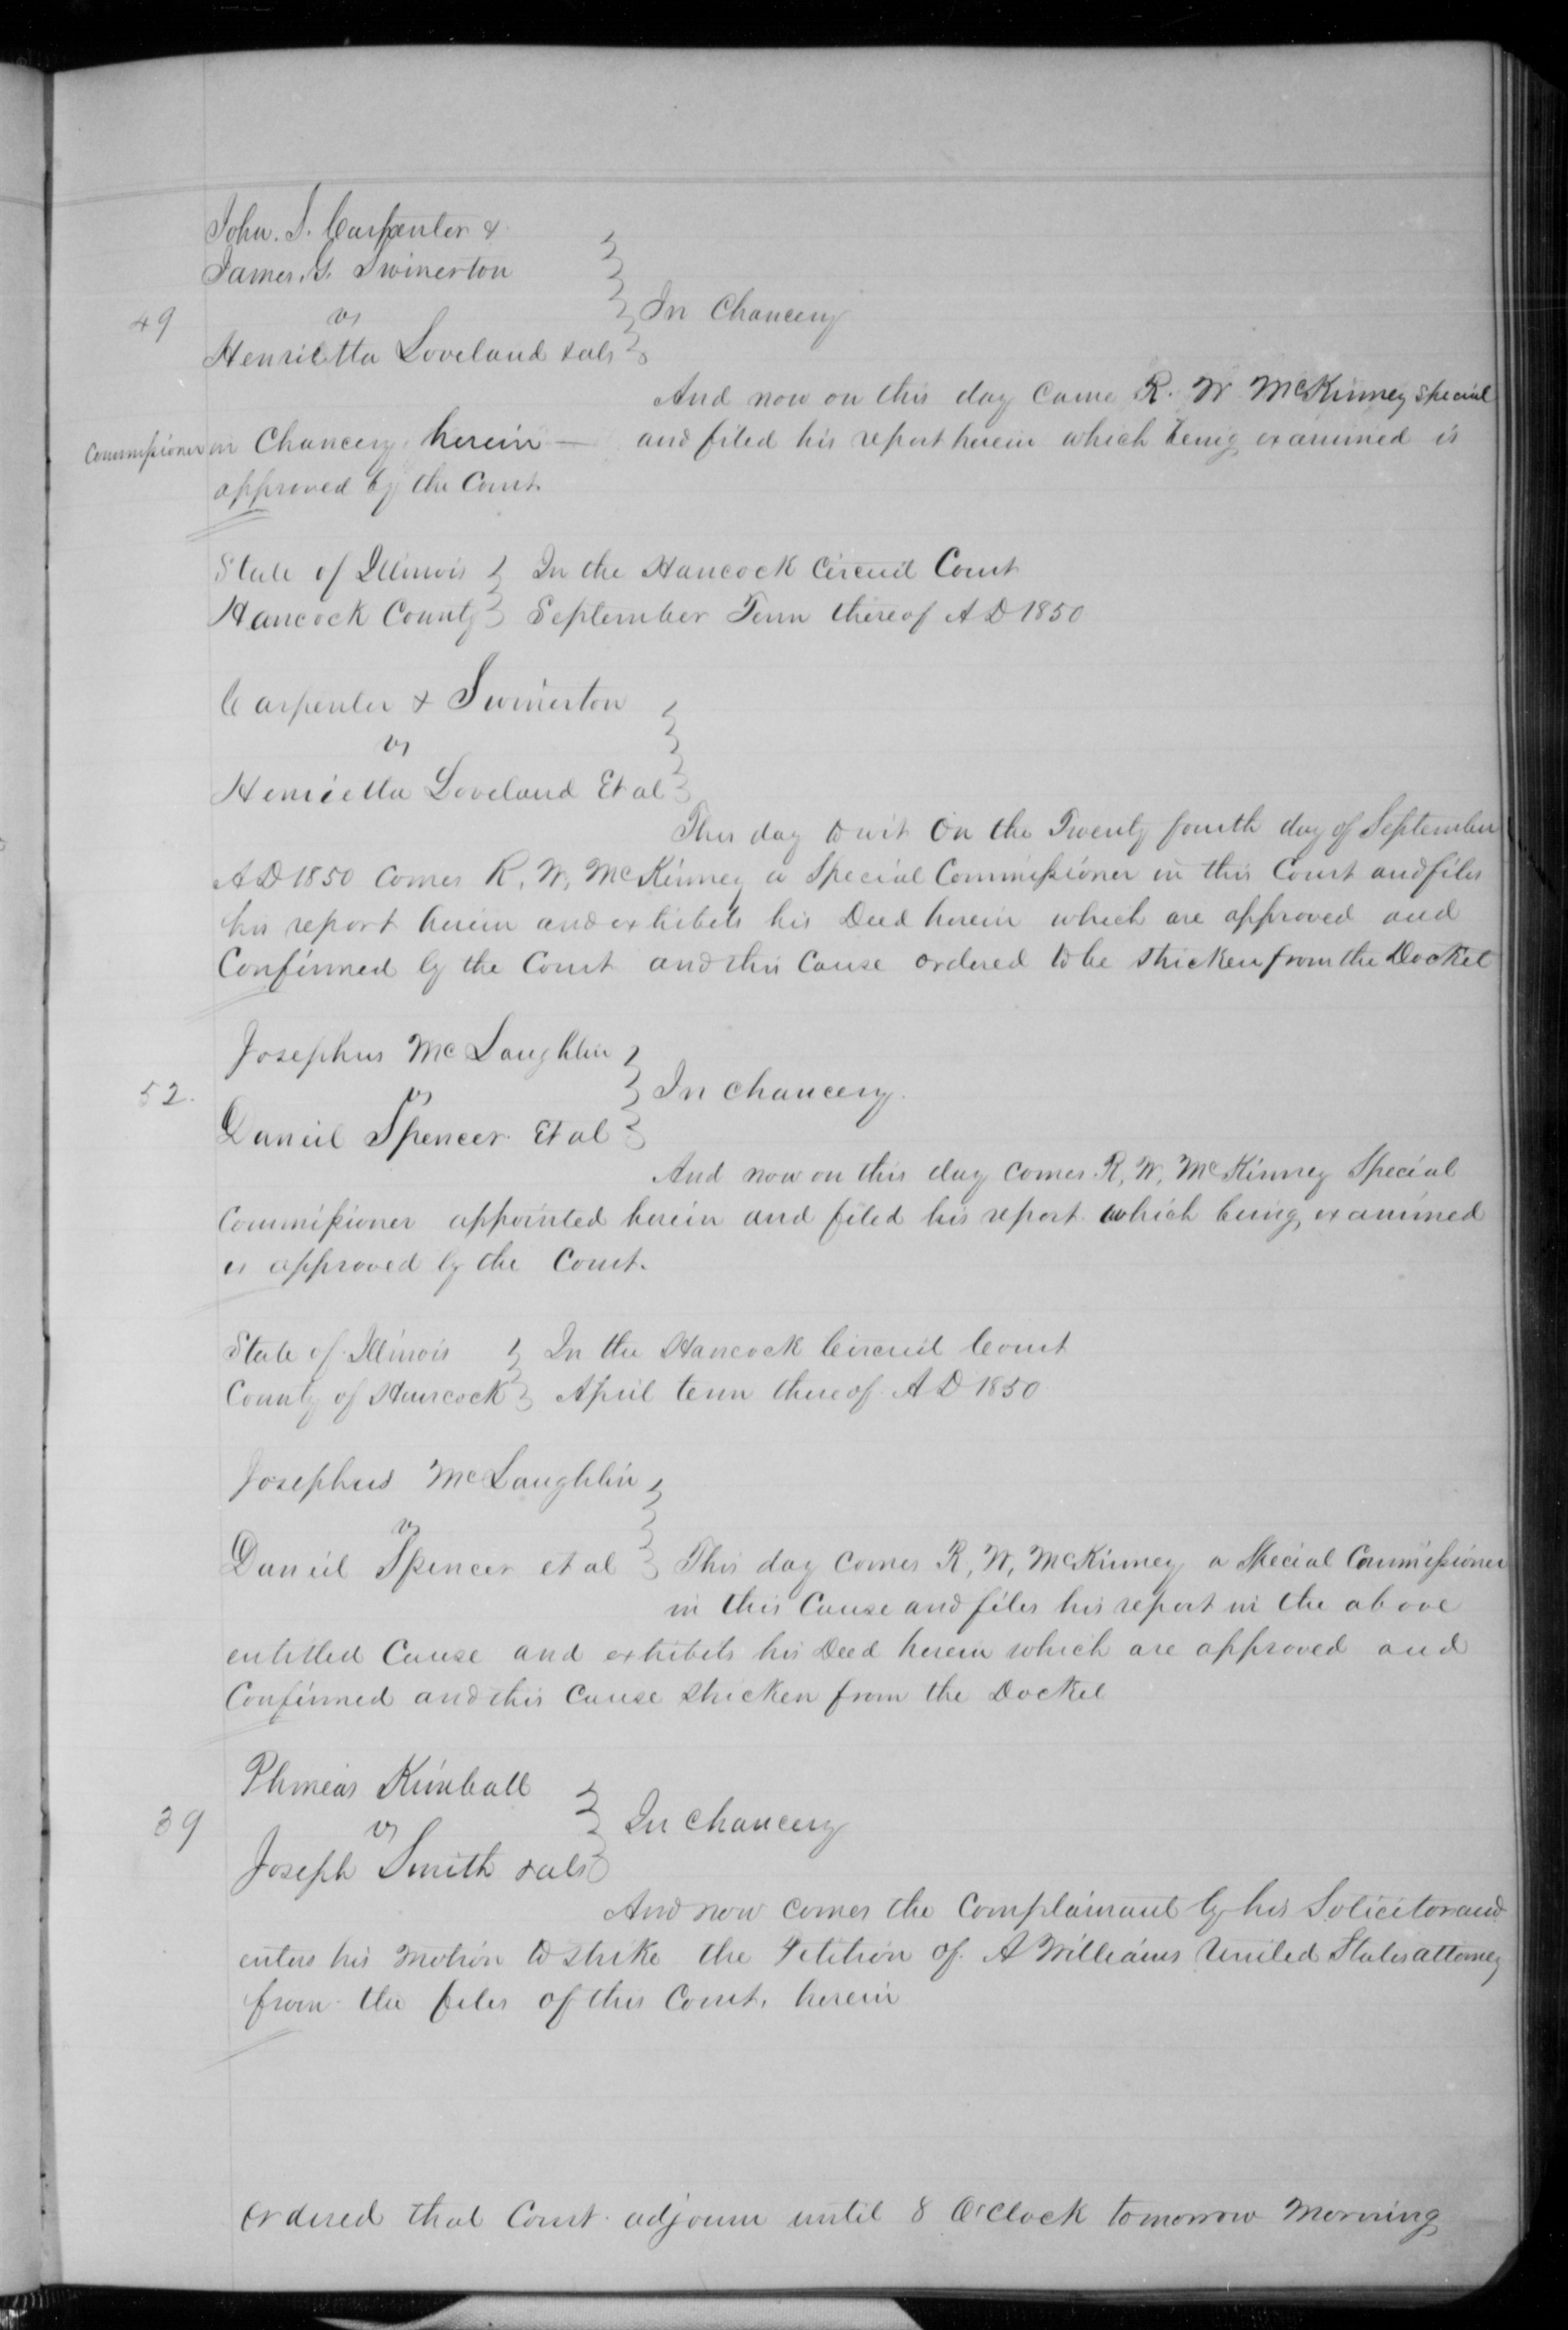 John. S. Carpenter &
James. G. Swinerton
49
vs
In Chancery
Henrietta Loveland & als
And now on this day Came R. W. McKinney Special
Commissioner in Chancery herein — and filed his report herein which being examined is
approved by the Court.
State of Illinois In the Hancock Circuit Court
Hancock County September Term thereof A D 1850
Carpenter & Swinerton
vs
Henrietta Loveland Et al
This day to wit On the Twenty fourth day of September
A D 1850 Comes R. W. McKinney a Special Commissioner in this Court and files
his report herein and exhibits his Deed herein which are approved and
Confirmed by the Court and this Cause ordered to be stricken from the Docket
Josephus McLaughlin
52. vs In chancery.
Daniel Spencer. Et al
And now on this day comes R. W. McKinney Special
Commissioner appointed herein and filed his report which being examined
is approved by the Court.
State of Illinois In the Hancock Circuit Court
County of Hancock April term thereof A D 1850
Josephus McLaughlin
vs
Daniel Spencer et al This day comes R. W. McKinney a Special Commissioner
in this Cause and files his report in the above
entitled Cause and exhibits his Deed herein which are approved and
Confirmed and this Cause stricken from the Docket
Phineas Kimball
39 vs In chancery
Joseph Smith & als
And now comes the Complainant by his Solicitor and
enters his Motion to strike the Petition of A Williams United States attorney
from the files of this Court. herein
Ordered that Court adjourn until 8 O'Clock tomorrow Morning